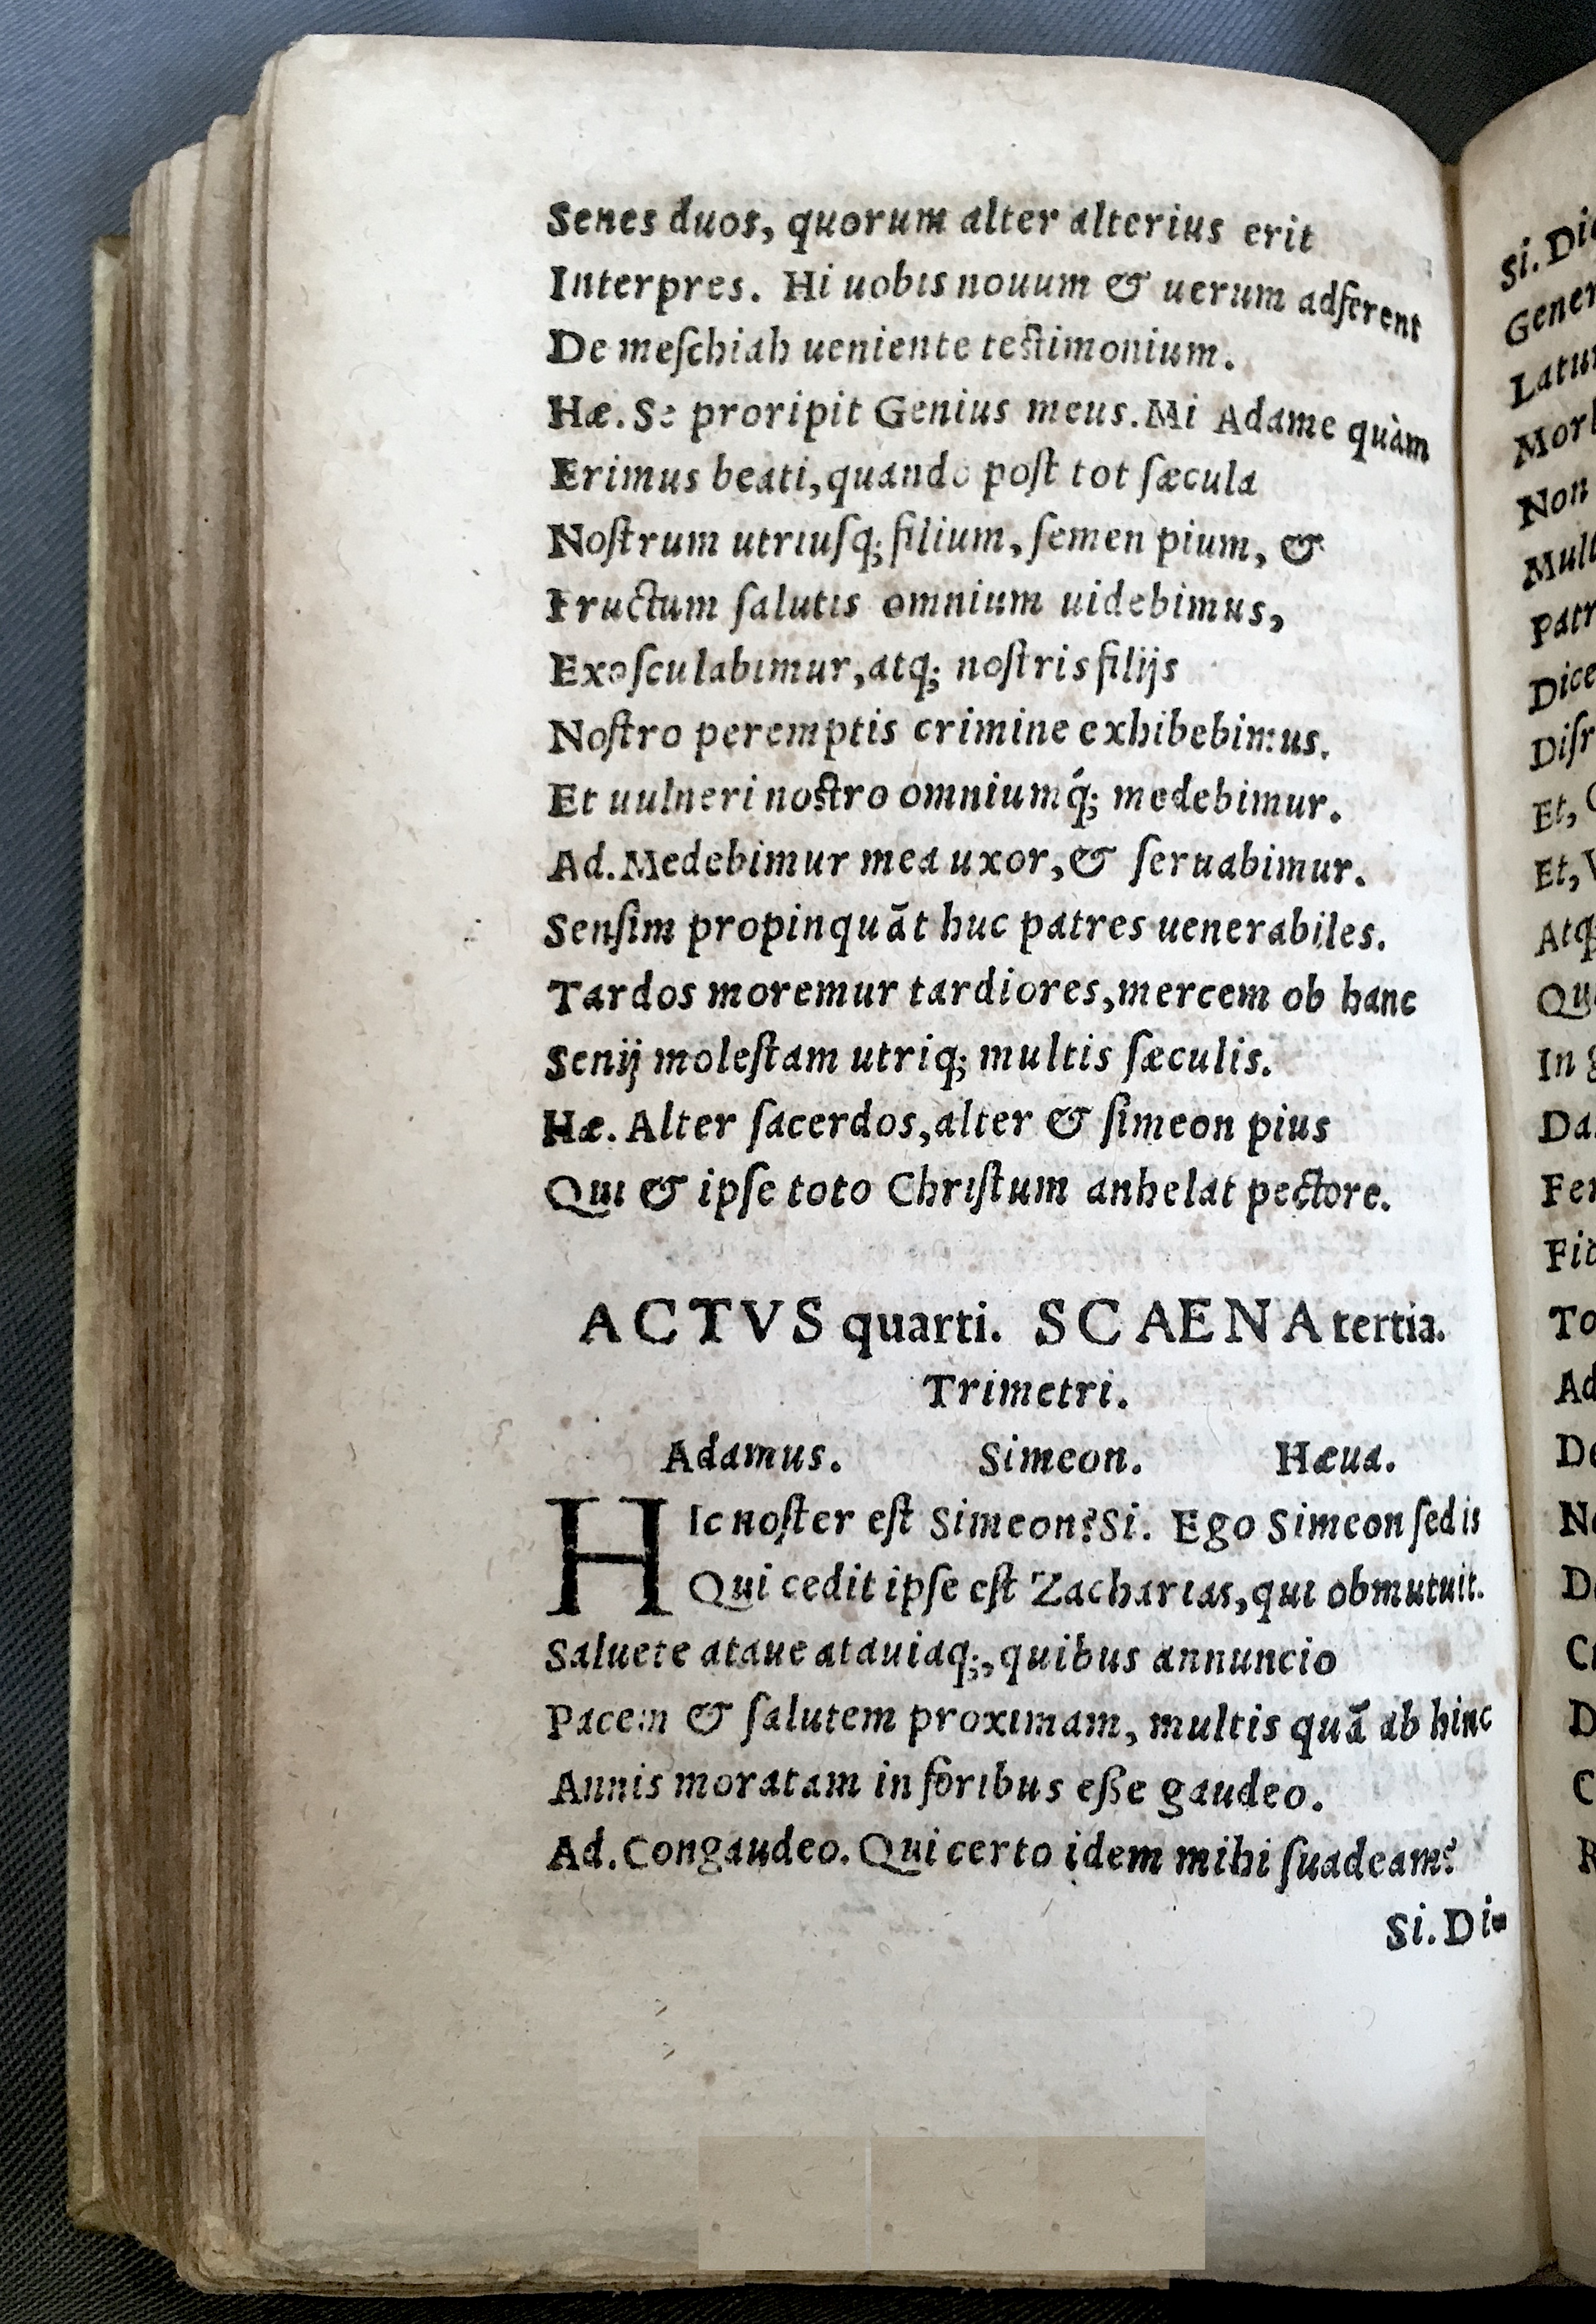 Senes duos, quorum alter alterius erit
Interpres. Hi uobis nouum & uerum adferent
De meſchiah ueniente teſtimonium.
Hæ. Se proripit Genius meus. Mi Adame quàm
Erimus beati, quando poſt tot ſæcula
Noſtrum utriuſq; filium, ſemen pium, &
Fructum ſalutis omnium uidebimus,
Exoſculabimur, atq; noſtris filijs
Noſtro peremptis crimine exhibebimus.
Et uulneri noſtro omniumq́; medebimur.
Ad. Medebimur mea uxor, & ſeruabimur.
Senſim propinquāt huc patres uenerabiles.
Tardos moremur tardiores, mercem ob hanc
Senij moleſtam utriq; multis ſæculis.
Hæ. Alter ſacerdos, alter & ſimeon pius
Qui & ipſe toto Chriſtum anhelat pectore.
ACTVS quarti. SCAENA tertia.
Trimetri.
Adamus. Simeon. Hæua.
HIc noſter eſt Simeon? Si. Ego Simeon ſed is
Qui cedit ipſe eſt Zacharias, qui obmutuit.
Saluete ataue atauiaq;, quibus annuncio
Pacem & ſalutem proximam, multis quā ab hinc
Annis moratam in foribus eſſe gaudeo.
Ad. Congaudeo. Qui certo idem mihi ſuadeam?
Si. Di-
Si. Di
Gener
Latu
Mor
Non
Mult
Patr
Dice
Diſr
Et,
Et,
Atq
Qu
In
Da
Fer
Fid
To
Ad
De
Ne
D
C
D
C
R